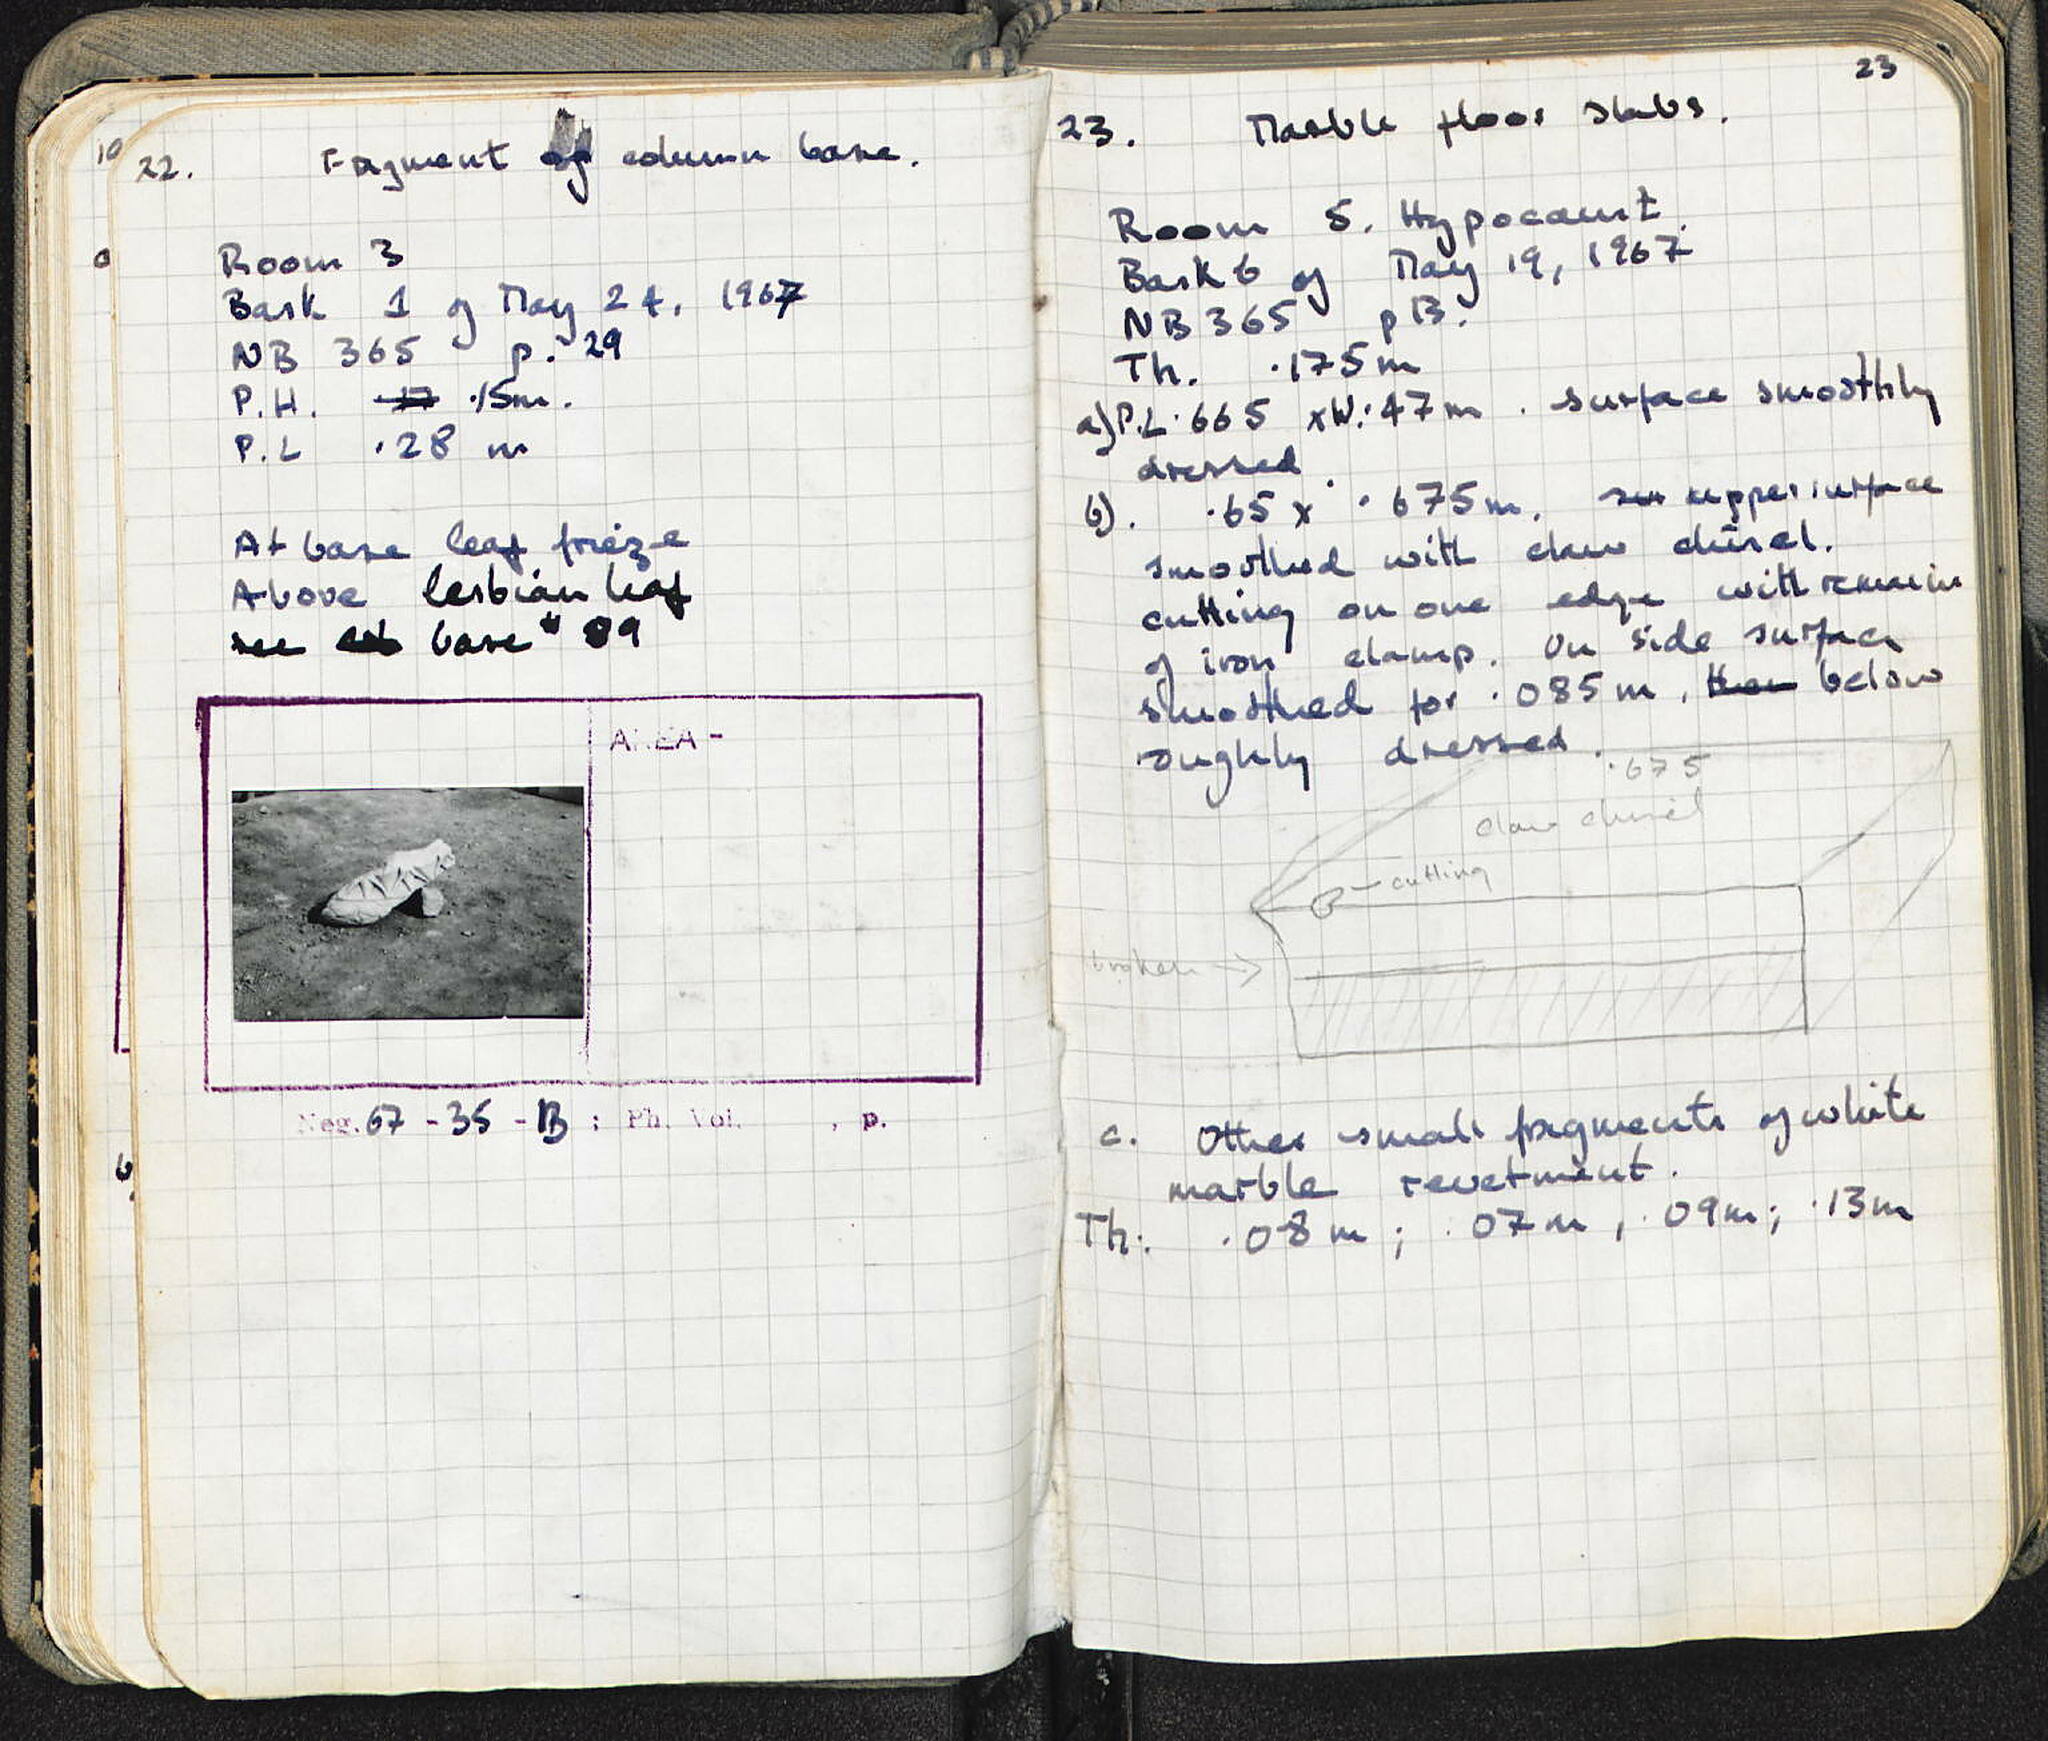 22. Fragment of column base.
Room 3
Bask 1 of May 24, 1967
NB 365 p. 29
P.H. .15m.
P.L .28 m
At base leaf frieze
Above lesbian leaf
see base # 89
AREA -
Neg. 67 - 35 - 13 : Ph. Vol. , p.
23
23. Marble floor slabs.
Room 5. Hypocaust.
Bask 6 of May 19, 1967
NB 365 p 13.
Th. .175m
a) P.L .665 x W: 47m . surface smoothly
dressed.
b). .65 x .675m. upper surface
smoothed with claw chisel.
cutting on one edge with remains
of iron clamp. On side surface
smoothed for .085m, then below
roughly dressed.
.675
claw chisel
cutting
broken →
c. Other small fragments of white
marble revetment.
Th: .08m ; .07m , .09m; .13m